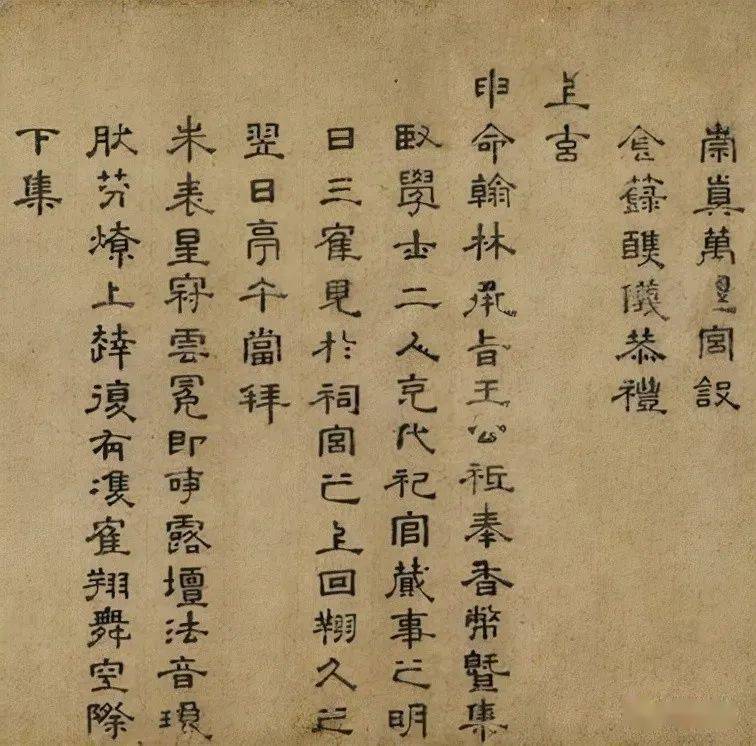 崇真萬壽宮設
金籙醮儀恭禮
上玄
申命翰林承旨王公祗奉香幣暨集
賢學士二人充代祀官蕆事之明
日三寉見於祠宮之上回翔久之
翌日亭午當拜
朱表星冠雲冕即時露壇法音琅
肰芬燎上達復有雙寉翔舞空際
下集